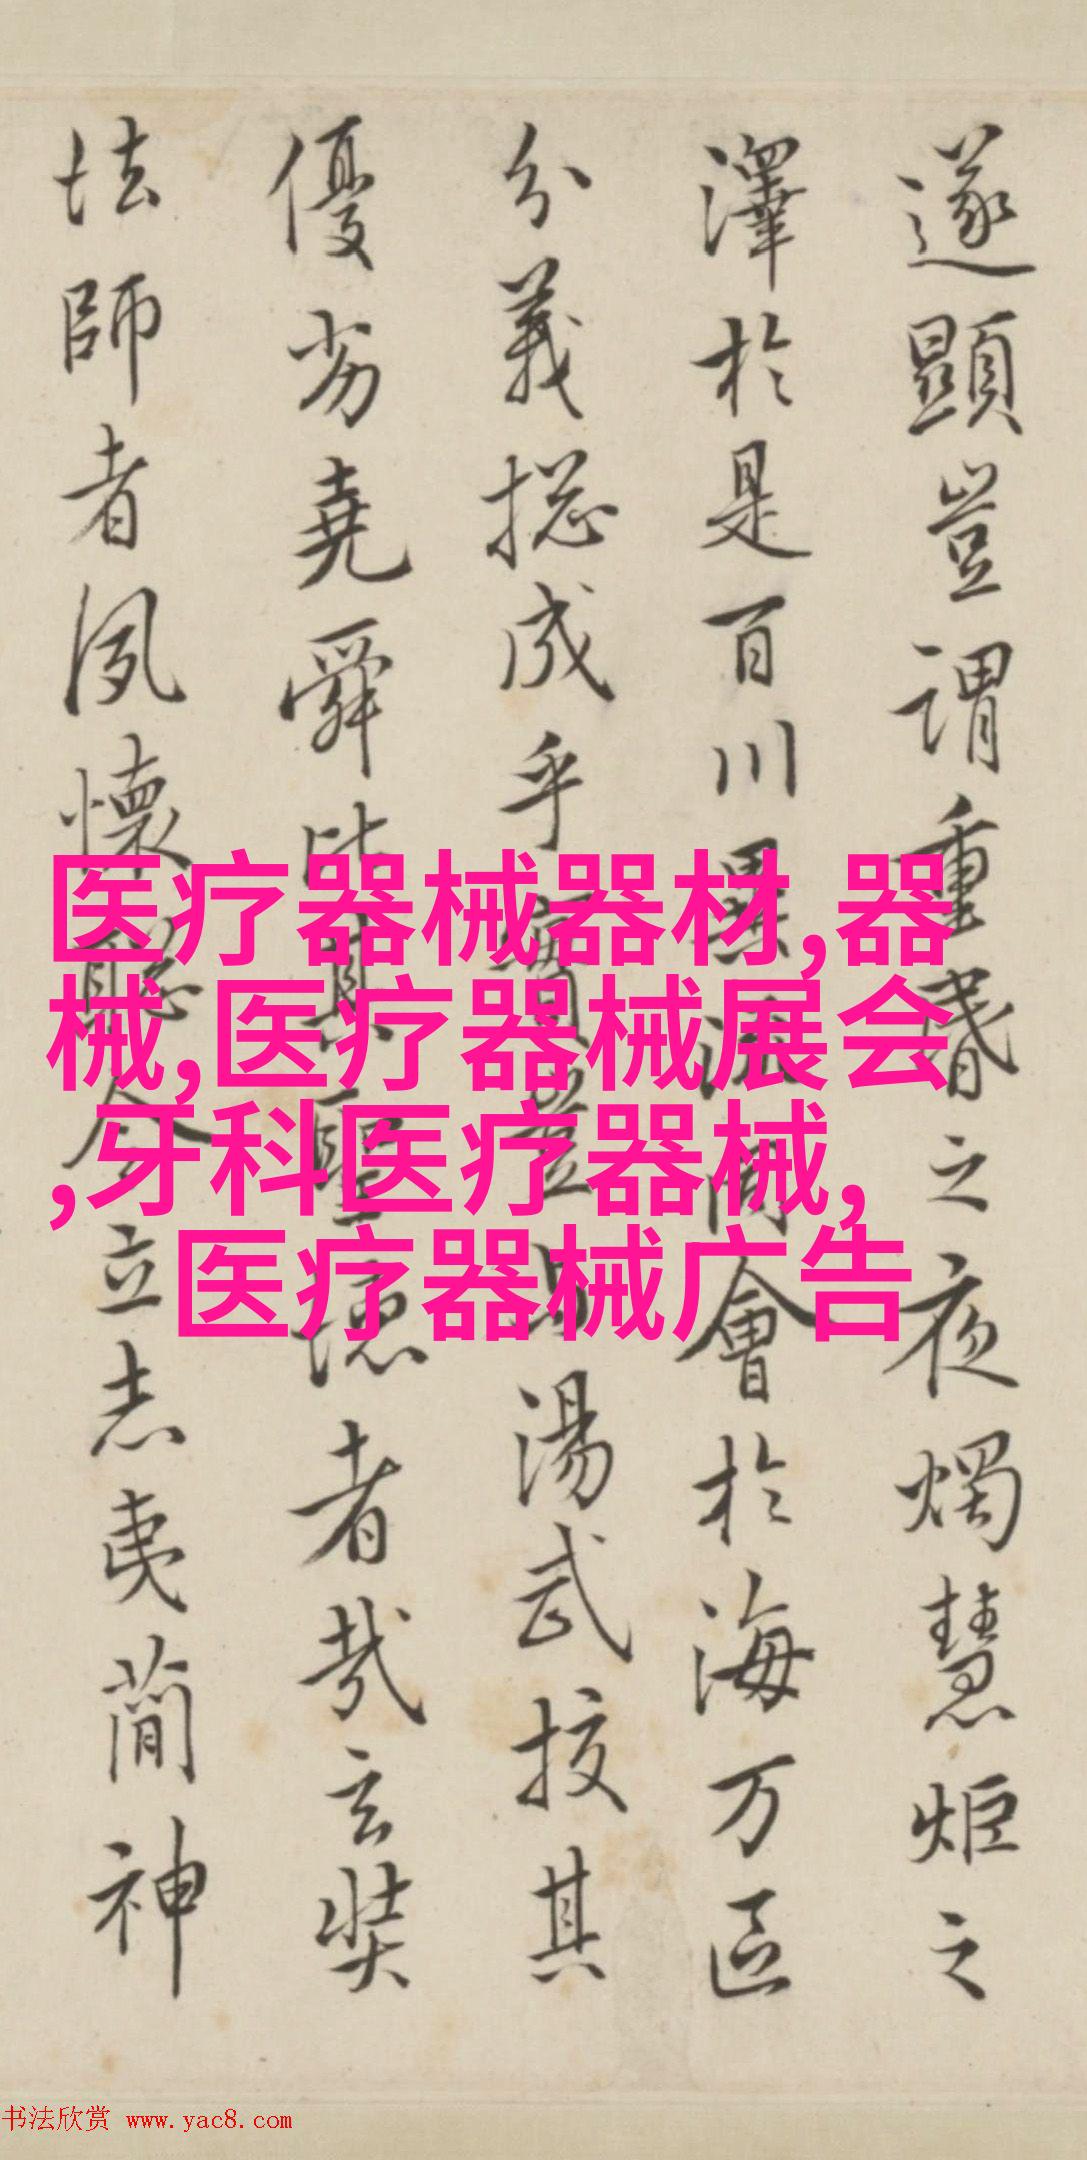 遂顯豈謂重昬之夜燭慧炬之
澤於是百川異流同會於海万區
分義揔成乎實豈与湯武挍其
優劣堯舜比其聖德者哉玄奘
法師者夙懷聰令立志夷簡神
医疗器械器材,器
械,医疗器械展会
,牙科医疗器械,
医疗器械广告
书法欣赏 www.yac8.com